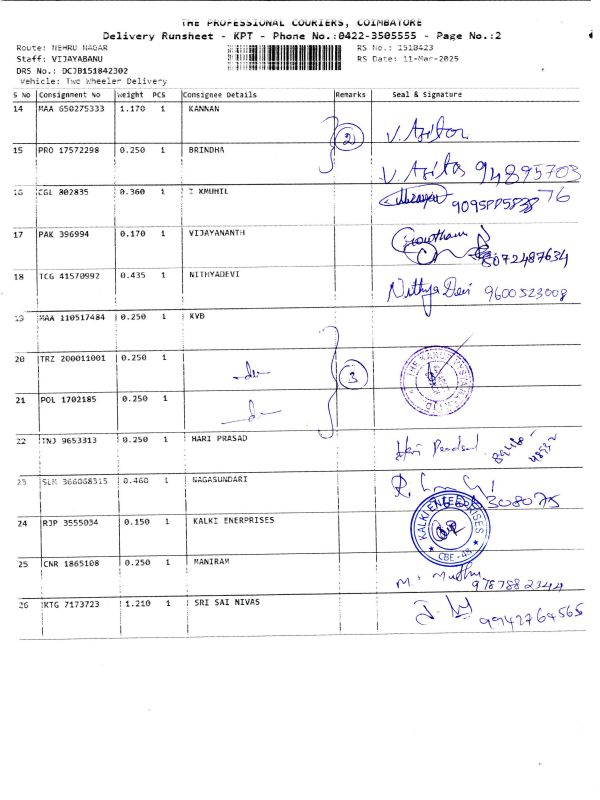 THE PROFESSIONAL COURIERS, COIMBATORE
Delivery Runsheet - KPT - Phone No.:0422-3505555 - Page No.:2
Route: NEHRU NAGAR
RS No.: 1518423
Staff: VIJAYABANU
RS Date: 11-Mar-2025
DRS No.: DCJB151842302
Vehicle: Two Wheeler Delivery
S No Consignment No Weight PCS Consignee Details Remarks Seal & Signature
14 MAA 650275333 1.170 1 KANNAN
2
15 PRO 17572298 0.250 1 BRINDHA
94895703
76
16 CGL 802835 0.360 1 I KMUHIL
17 PAK 396994 0.170 1 VIJAYANANTH Gowtham
8072487634
18 TCG 41570992 0.435 1 NITHYADEVI Nithya Devi 9600523008
19 MAA 110517484 0.250 1 KVB
20 TRZ 200011001 0.250 1 3
21 POL 1702185 0.250 1
22 TNJ 9653313 0.250 1 HARI PRASAD Hari
23 SLM 366068315 0.460 1 NAGASUNDARI
308075
24 RJP 3555034 0.150 1 KALKI ENERPRISES KALKI ENTERPRISES
25 CNR 1865108 0.250 1 MANIRAM
M. Muthu 9787882344
26 KTG 7173723 1.210 1 SRI SAI NIVAS 9942764565